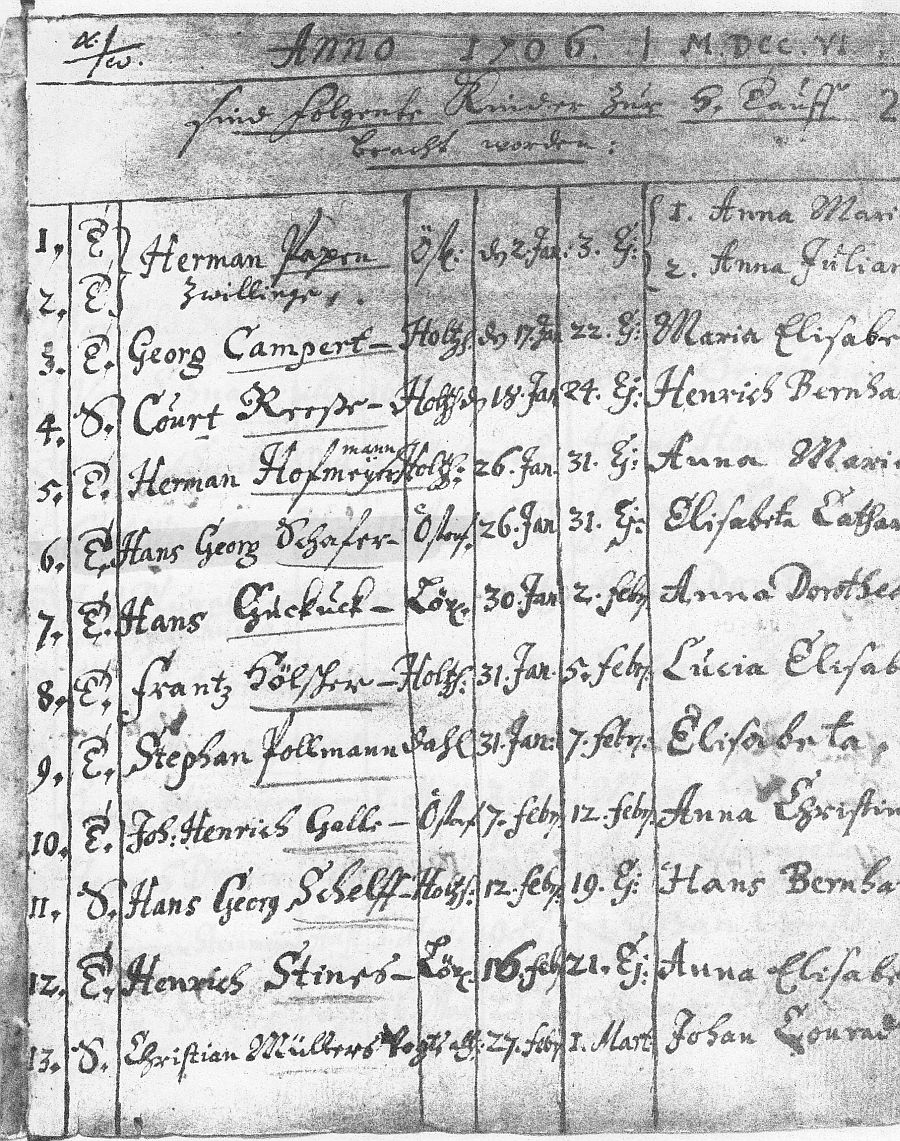 α. / ω.
Anno 1706. | M.DCC.VI.
sind folgente Kinder zur H. Tauff 2
bracht worden:
1. T. Herman Papen den 2. Jan. 3. Ej: 1. Anna Mari
2. T. Zwillinge 2. Anna Julian
3. T. Georg Campert Holtzh. den 17. Jan 22. Ej: Maria Elisabe
4. S. Court Reese Holtzh. den 18. Jan 24. Ej: Henrich Bernha
mann
5. T. Herman Hofmeyer Holtzh: 26. Jan. 31. Ej: Anna Mari
6. T. Hans Georg Schafer 26. Jan 31. Ej: Elisabeta Cathar
7. T. Hans Guckuck Löx. 30 Jan 2. febr. Anna Dorothe
8. T. Frantz Hölscher Holtzh. 31. Jan. 5. febr. Lucia Elisab
9. T. Stephan Pollmann Dahl 31. Jan: 7. febr: Elisabeta.
10. T. Joh: Henrich Galle 7. febr. 12. febr. Anna Christin
11. S. Hans Georg Schelff Holtzh: 12. febr: 19. Ej: Hans Bernha
12. T. Henrich Stines Löx. 16. feb. 21. Ej: Anna Elisabe
13. S. Christian Müllers 27. febr 1. Mart. Johan Conrad